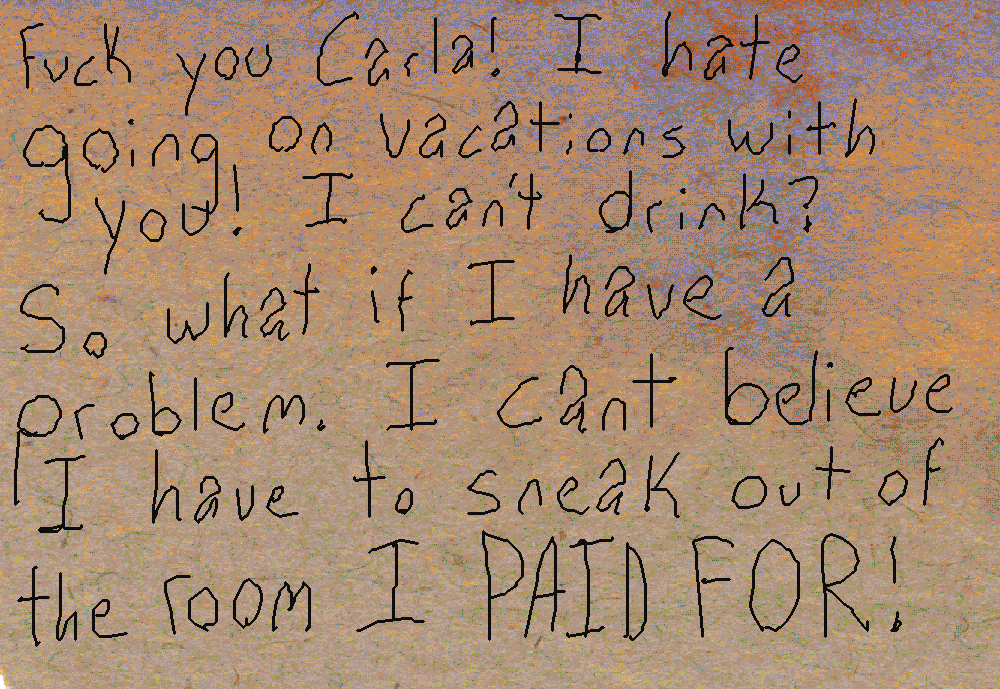 Fuck you Carla! I hate
going on vacations with
you! I can't drink?
So what if I have a
problem. I cant believe
I have to sneak out of
the room I PAID FOR!